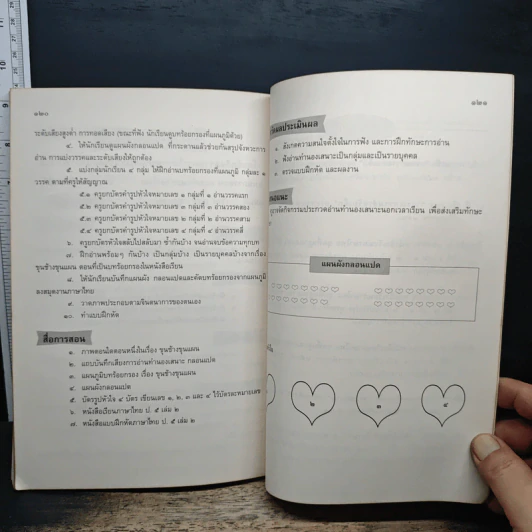 ๑๒๐
ระดับเสียงสูงต่ำ การทอดเสียง (ขณะที่ฟัง นักเรียนดูบทร้อยกรองที่แผนภูมิด้วย)
๔. ให้นักเรียนดูแผนผังกลอนแปด ที่กระดานแล้วช่วยกันสรุปจังหวะการ
อ่าน การแบ่งวรรคและระดับเสียงให้ถูกต้อง
๕. แบ่งกลุ่มนักเรียน ๔ กลุ่ม ให้ฝึกอ่านบทร้อยกรองที่แผนภูมิ กลุ่มละ ๑
วรรค ตามที่ครูให้สัญญาณ
๕.๑ ครูยกบัตรคำรูปหัวใจหมายเลข ๑ กลุ่มที่ ๑ อ่านวรรคแรก
๕.๒ ครูยกบัตรคำรูปหัวใจหมายเลข ๒ กลุ่มที่ ๒ อ่านวรรคสอง
๕.๓ ครูยกบัตรคำรูปหัวใจหมายเลข ๓ กลุ่มที่ ๓ อ่านวรรคสาม
๕.๔ ครูยกบัตรคำรูปหัวใจหมายเลข ๔ กลุ่มที่ ๔ อ่านวรรคสี่
๖. ครูยกบัตรหัวใจสลับไปสลับมา ซ้ำกันบ้าง จนอ่านจบข้อความทุกบท
๗. ฝึกอ่านพร้อมๆ กันบ้าง เป็นกลุ่มบ้าง เป็นรายบุคคลบ้างจากเรื่อง
ขุนช้างขุนแผน ตอนที่เป็นบทร้อยกรองในหนังสือเรียน
๘. ให้นักเรียนบันทึกแผนผัง กลอนแปดและคัดบทร้อยกรองจากแผนภูมิ
ลงสมุดงานภาษาไทย
๙. วาดภาพประกอบตามจินตนาการของตนเอง
๑๐. ทำแบบฝึกหัด
สื่อการสอน
๑. ภาพตอนใดตอนหนึ่งในเรื่อง ขุนช้างขุนแผน
๒. แถบบันทึกเสียงการอ่านทำนองเสนาะ กลอนแปด
๓. แผนภูมิบทร้อยกรอง เรื่อง ขุนช้างขุนแผน
๔. แผนผังกลอนแปด
๕. บัตรรูปหัวใจ ๔ บัตร เขียนเลข ๑, ๒, ๓ และ ๔ ไว้บัตรละหมายเลข
๖. หนังสือเรียนภาษาไทย ป. ๕ เล่ม ๒
๗. หนังสือแบบฝึกหัดภาษาไทย ป. ๕ เล่ม ๒
๑๒๑
ผลประเมินผล
๑. สังเกตความสนใจตั้งใจในการฟัง และการฝึกทักษะการอ่าน
๒. ฟังอ่านทำนองเสนาะเป็นกลุ่มและเป็นรายบุคคล
๓. ตรวจแบบฝึกหัด และผลงาน
จัดกิจกรรมประกวดอ่านทำนองเสนาะนอกเวลาเรียน เพื่อส่งเสริมทักษะ
แผนผังกลอนแปด
๒ ๓ ๔